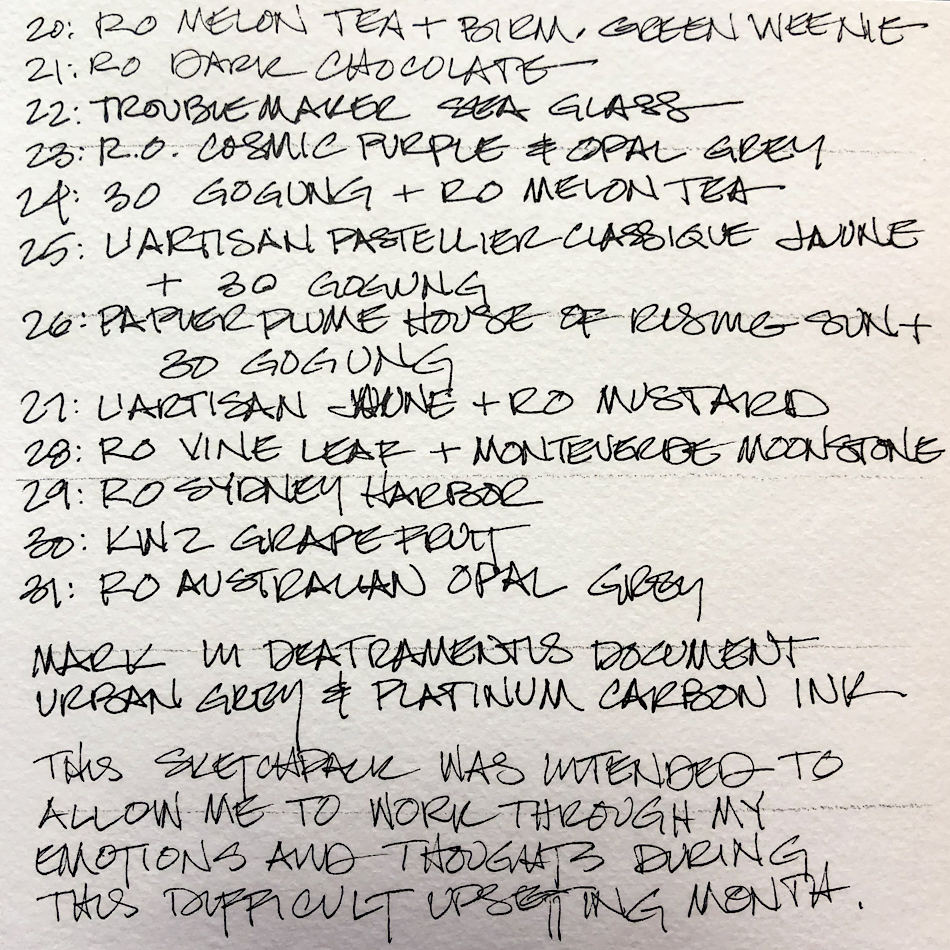 20: RO MELON TEA + BIRM. GREEN WEENIE
21: RO DARK CHOCOLATE
22: TROUBLEMAKER SEA GLASS
23: R.O. COSMIC PURPLE & OPAL GREY
24: 30 GOGUNG + RO MELON TEA
25: L'ARTISAN PASTELLIER CLASSIQUE JAUNE
+ 30 GOGUNG
26: PAPIER PLUME HOUSE OF RISING SUN +
30 GOGUNG
27: L'ARTISAN JAUNE + RO MUSTARD
28: RO VINE LEAF + MONTEVERDE MOONSTONE
29: RO SYDNEY HARBOR
30: KWZ GRAPEFRUIT
31: RO AUSTRALIAN OPAL GREY
MARK IN DEATRAMENTIS DOCUMENT
URBAN GREY & PLATINUM CARBON INK
THIS SKETCHPACK WAS INTENDED TO
ALLOW ME TO WORK THROUGH MY
EMOTIONS AND THOUGHTS DURING
THIS DIFFICULT UPSETTING MONTH.